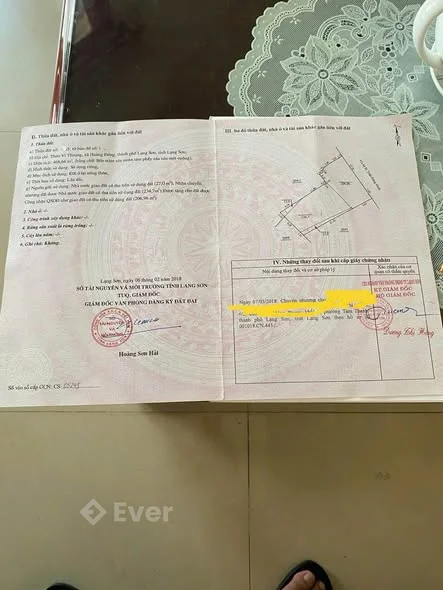 II. Thửa đất, nhà ở và tài sản khác gắn liền với đất
1. Thửa đất:
a) Thửa đất số: tờ bản đồ số:
b) Địa chỉ: Thôn Vĩ Thượng, xã Hoàng Đồng, thành phố Lạng Sơn, tỉnh Lạng Sơn.
c) Diện tích: 468,66 m²,
d) Hình thức sử dụng: Sử dụng riêng.
đ) Mục đích sử dụng: Đất ở tại nông thôn.
e) Thời hạn sử dụng: Lâu dài.
g) Nguồn gốc sử dụng: Nhà nước giao đất có thu tiền sử dụng đất (27,0 m²), Nhận chuyển
nhượng đất được Nhà nước giao đất có thu tiền sử dụng đất (234,7m²) Được tặng cho đất được
Công nhận QSDĐ như giao đất có thu tiền sử dụng đất (206,96 m²).
2. Nhà ở: -/-
3. Công trình xây dựng khác: -/-
4. Rừng sản xuất là rừng trồng: -/-
5. Cây lâu năm: -/-
6. Ghi chú: Không.
Lạng Sơn, ngày 06 tháng 02 năm 2018
SỞ TÀI NGUYÊN VÀ MÔI TRƯỜNG TỈNH LẠNG SƠN
TUQ. GIÁM ĐỐC
GIÁM ĐỐC VĂN PHÒNG ĐĂNG KÝ ĐẤT ĐAI
SỞ
TÀI NGUYÊN
VÀ
MÔI TRƯỜNG
Hoàng Sơn Hải
Số vào sổ cấp GCN: CS
III. Sơ đồ thửa đất, nhà ở và tài sản khác gắn liền với đất
IV. Những thay đổi sau khi cấp giấy chứng nhận
Nội dung thay đổi và cơ sở pháp lý
Xác nhận của cơ
quan có thẩm quyền
Ngày 07/03/2018 Chuyển nhượng cho
phường Tam Thanh
thành phố Lạng Sơn, tỉnh Lạng Sơn theo hồ sơ
001018.CN.445./.
KT. GIÁM ĐỐC
PHÓ GIÁM ĐỐC
Dương Thị Hồng
Ever